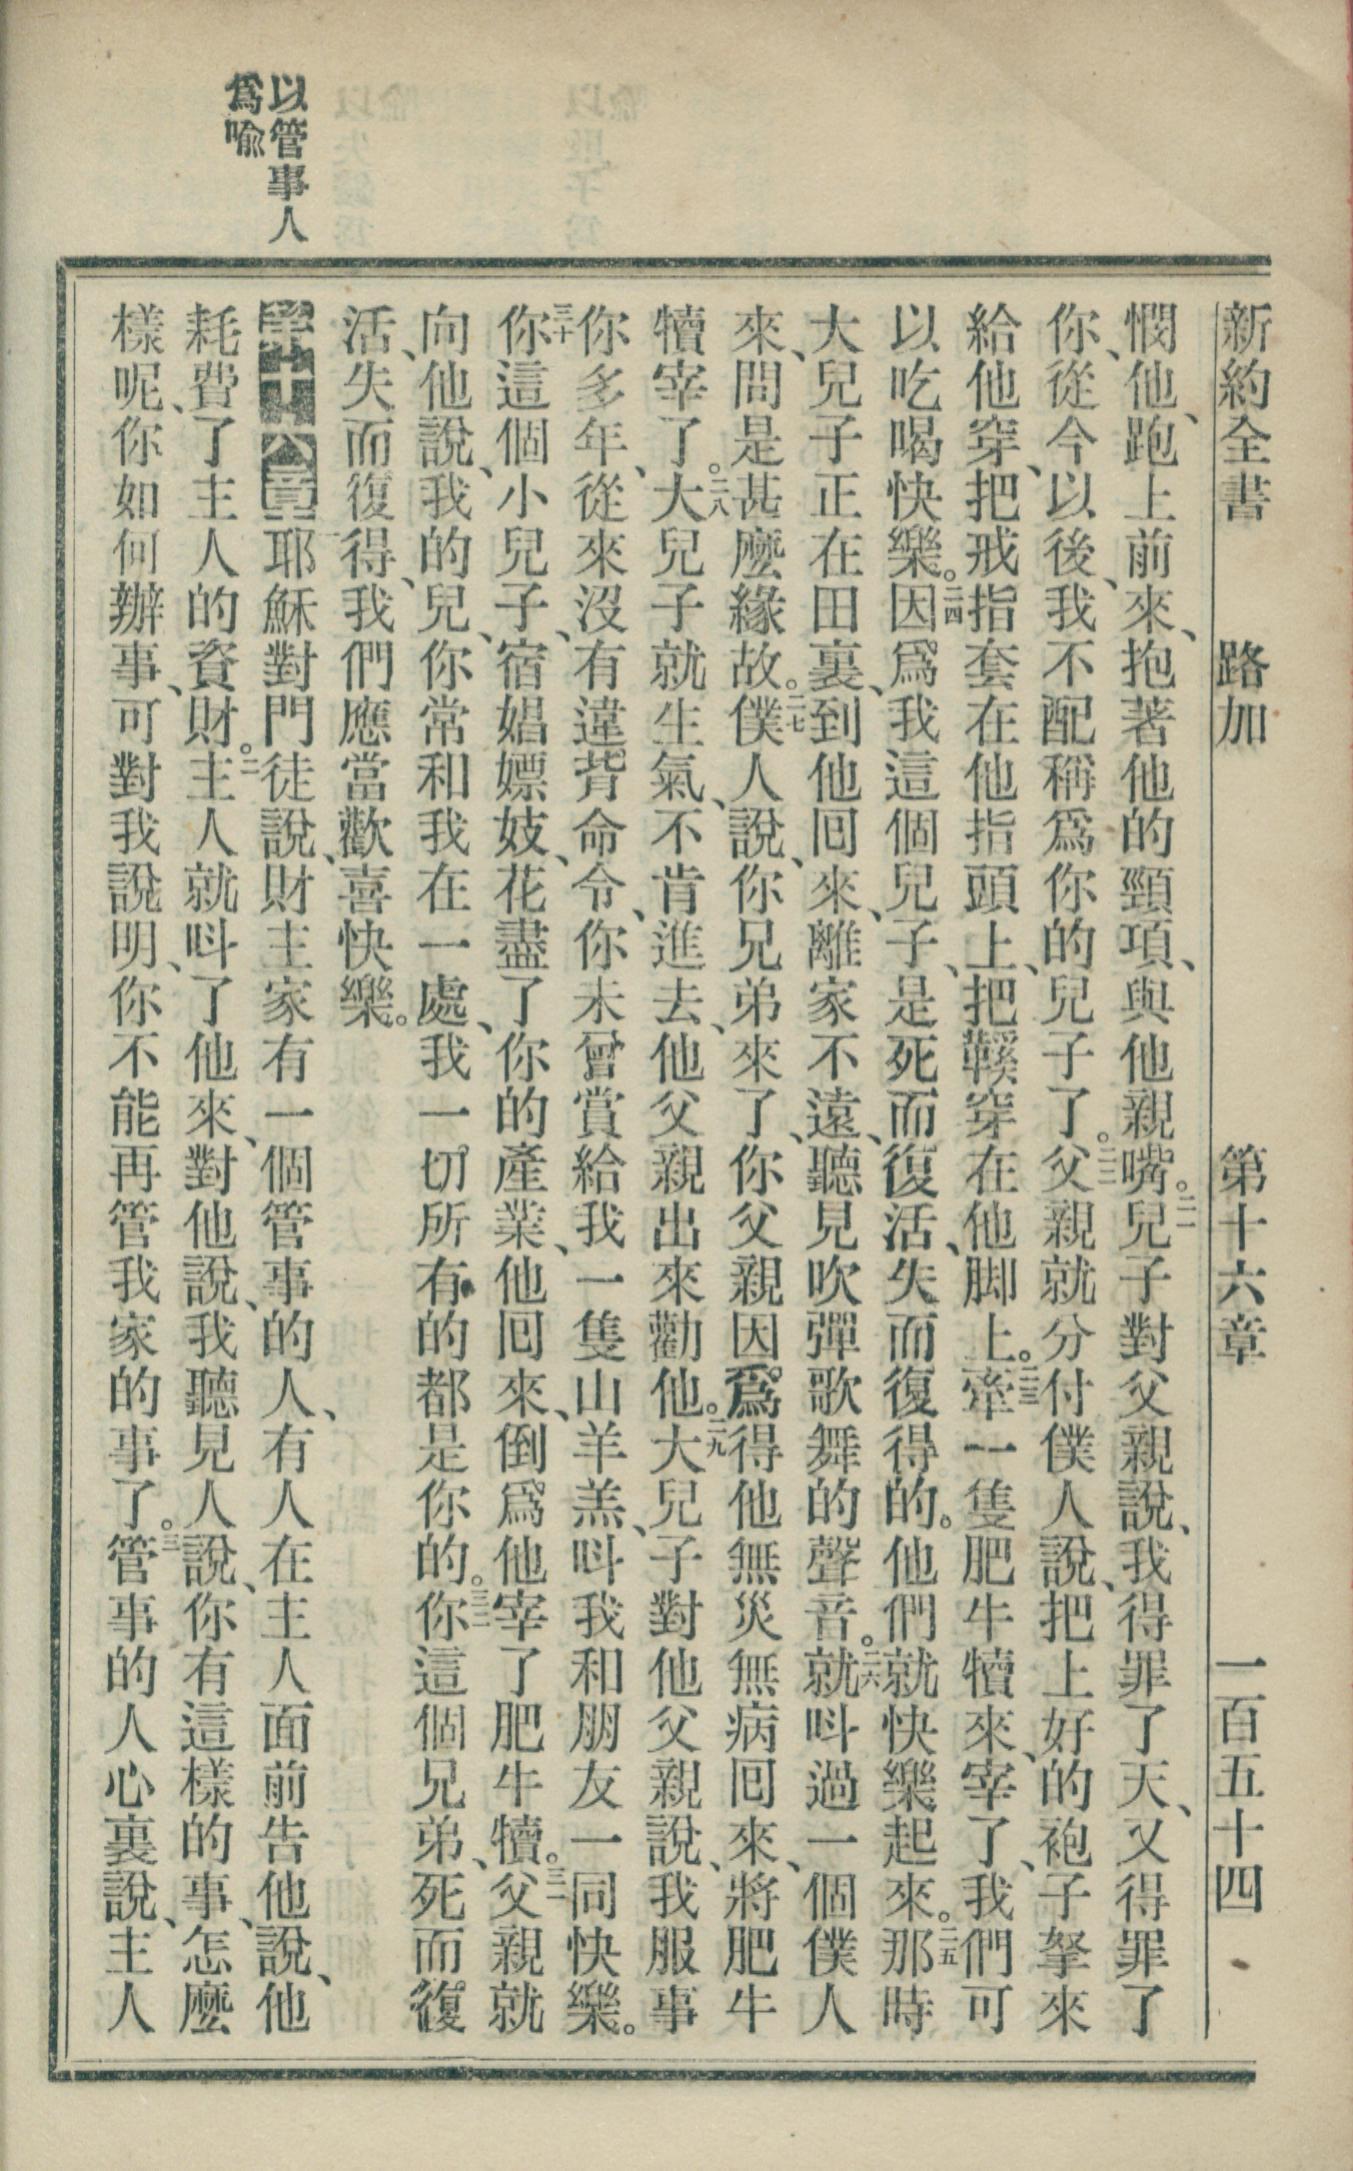 新約全書 路加 第十六章 一百五十四
憫他、跑上前來、抱著他的頸項、與他親嘴。二一兒子對父親說、我得罪了天、又得罪了
你、從今以後、我不配稱爲你的兒子了。二二父親就分付僕人說、把上好的袍子拏來
給他穿、把戒指套在他指頭上、把鞵穿在他脚上。二三牽一隻肥牛犢來、宰了、我們可
以吃喝快樂。二四因爲我這個兒子、是死而復活、失而復得的。他們就快樂起來。二五那時
大兒子正在田裏、到他囘來、離家不遠、聽見吹彈歌舞的聲音。二六就呌過一個僕人
來、問是甚麼緣故。二七僕人說、你兄弟來了、你父親因爲得他無災無病囘來、將肥牛
犢宰了。二八大兒子就生氣、不肯進去、他父親出來勸他。二九大兒子對他父親說、我服事
你多年、從來沒有違背命令、你未曾賞給我一隻山羊羔、呌我和朋友一同快樂。
三十你這個小兒子、宿娼嫖妓、花盡了你的產業、他囘來、倒爲他宰了肥牛犢。三一父親就
向他說、我的兒、你常和我在一處、我一切所有的都是你的。三二你這個兄弟、死而復
活、失而復得、我們應當歡喜快樂。
以管事人
爲喩
第十六章耶穌對門徒說、財主家有一個管事的人、有人在主人面前告他說、他
耗費了主人的資財。二主人就呌了他來、對他說、我聽見人說、你有這樣的事、怎麼
樣呢、你如何辦事、可對我說明、你不能再管我家的事了。三管事的人心裏說、主人